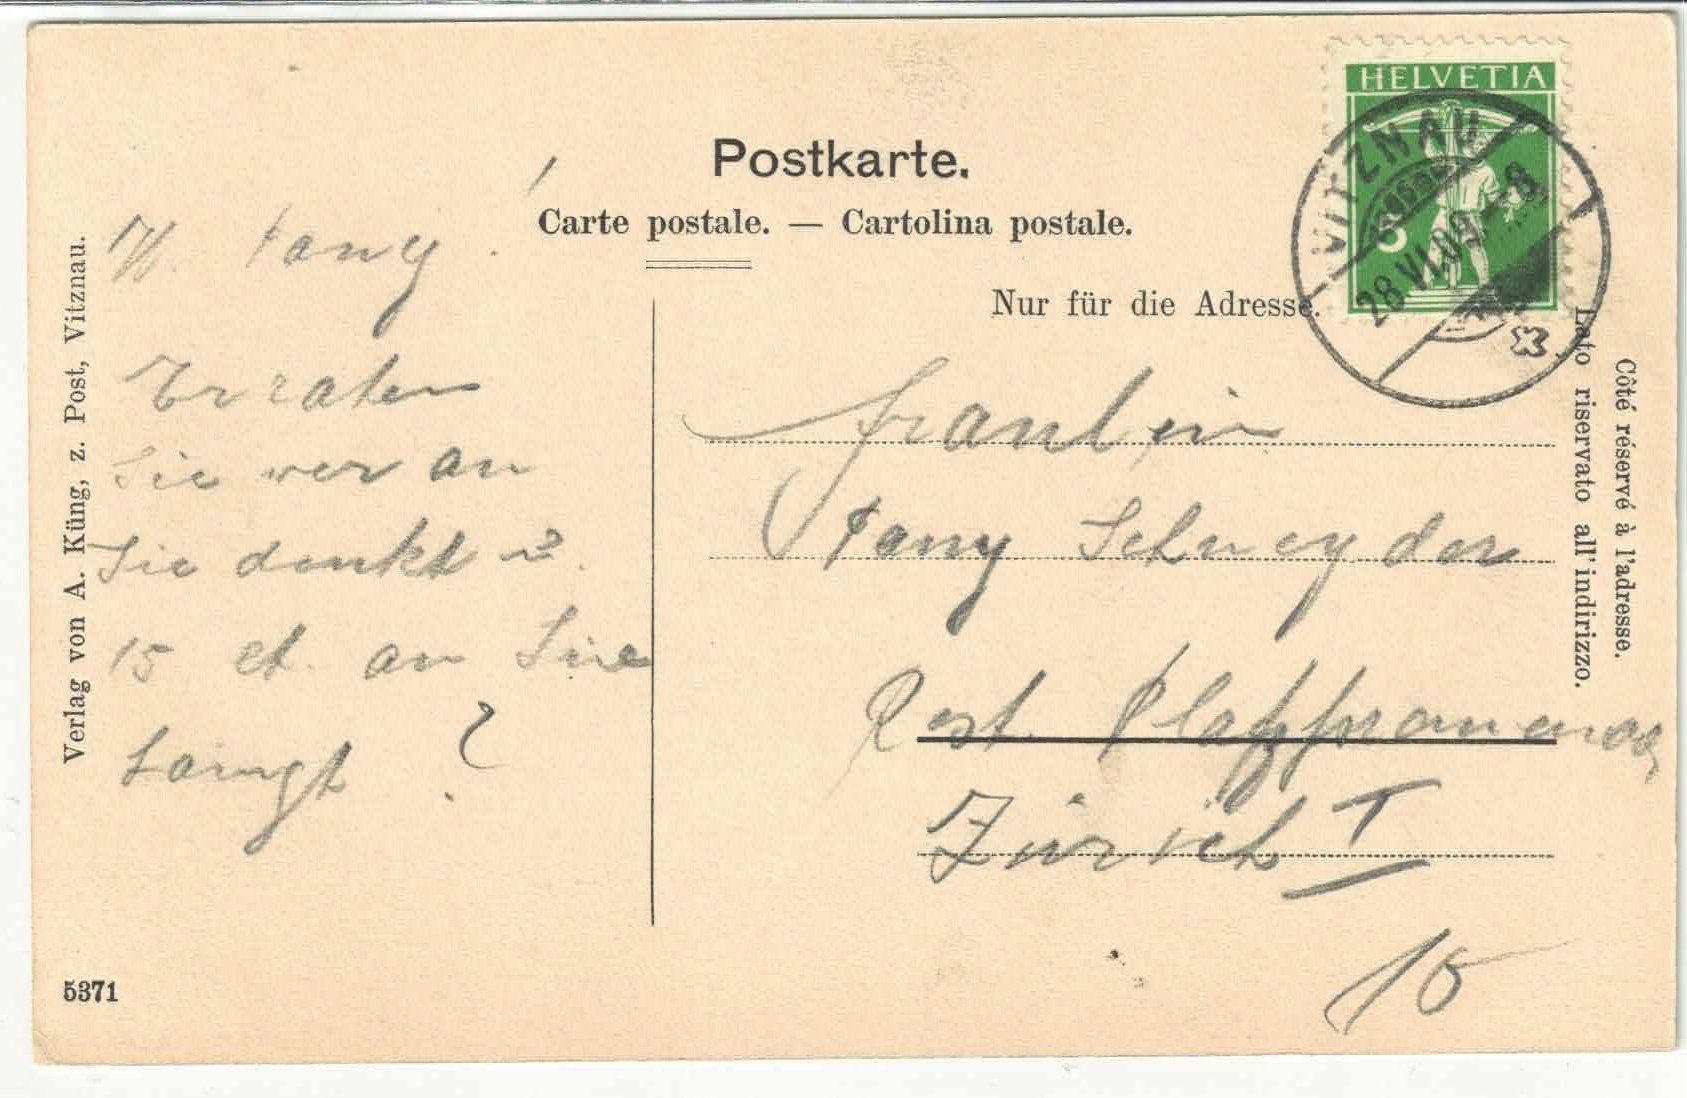 Postkarte.
Carte postale. — Cartolina postale.
Nur für die Adresse.
HELVETIA
VITZNAU
28.VI.09.–8
Côté réservé à l'adresse.
Lato riservato all'indirizzo.
Verlag von A. Küng, z. Post, Vitznau.
W. Fany.
Erraten
Sie wer an
Sie denkt
15 ct. an Sie
?
Fraulein
Fany Schneyder
Rest. Platzpromenade
Zürich I
15
5371